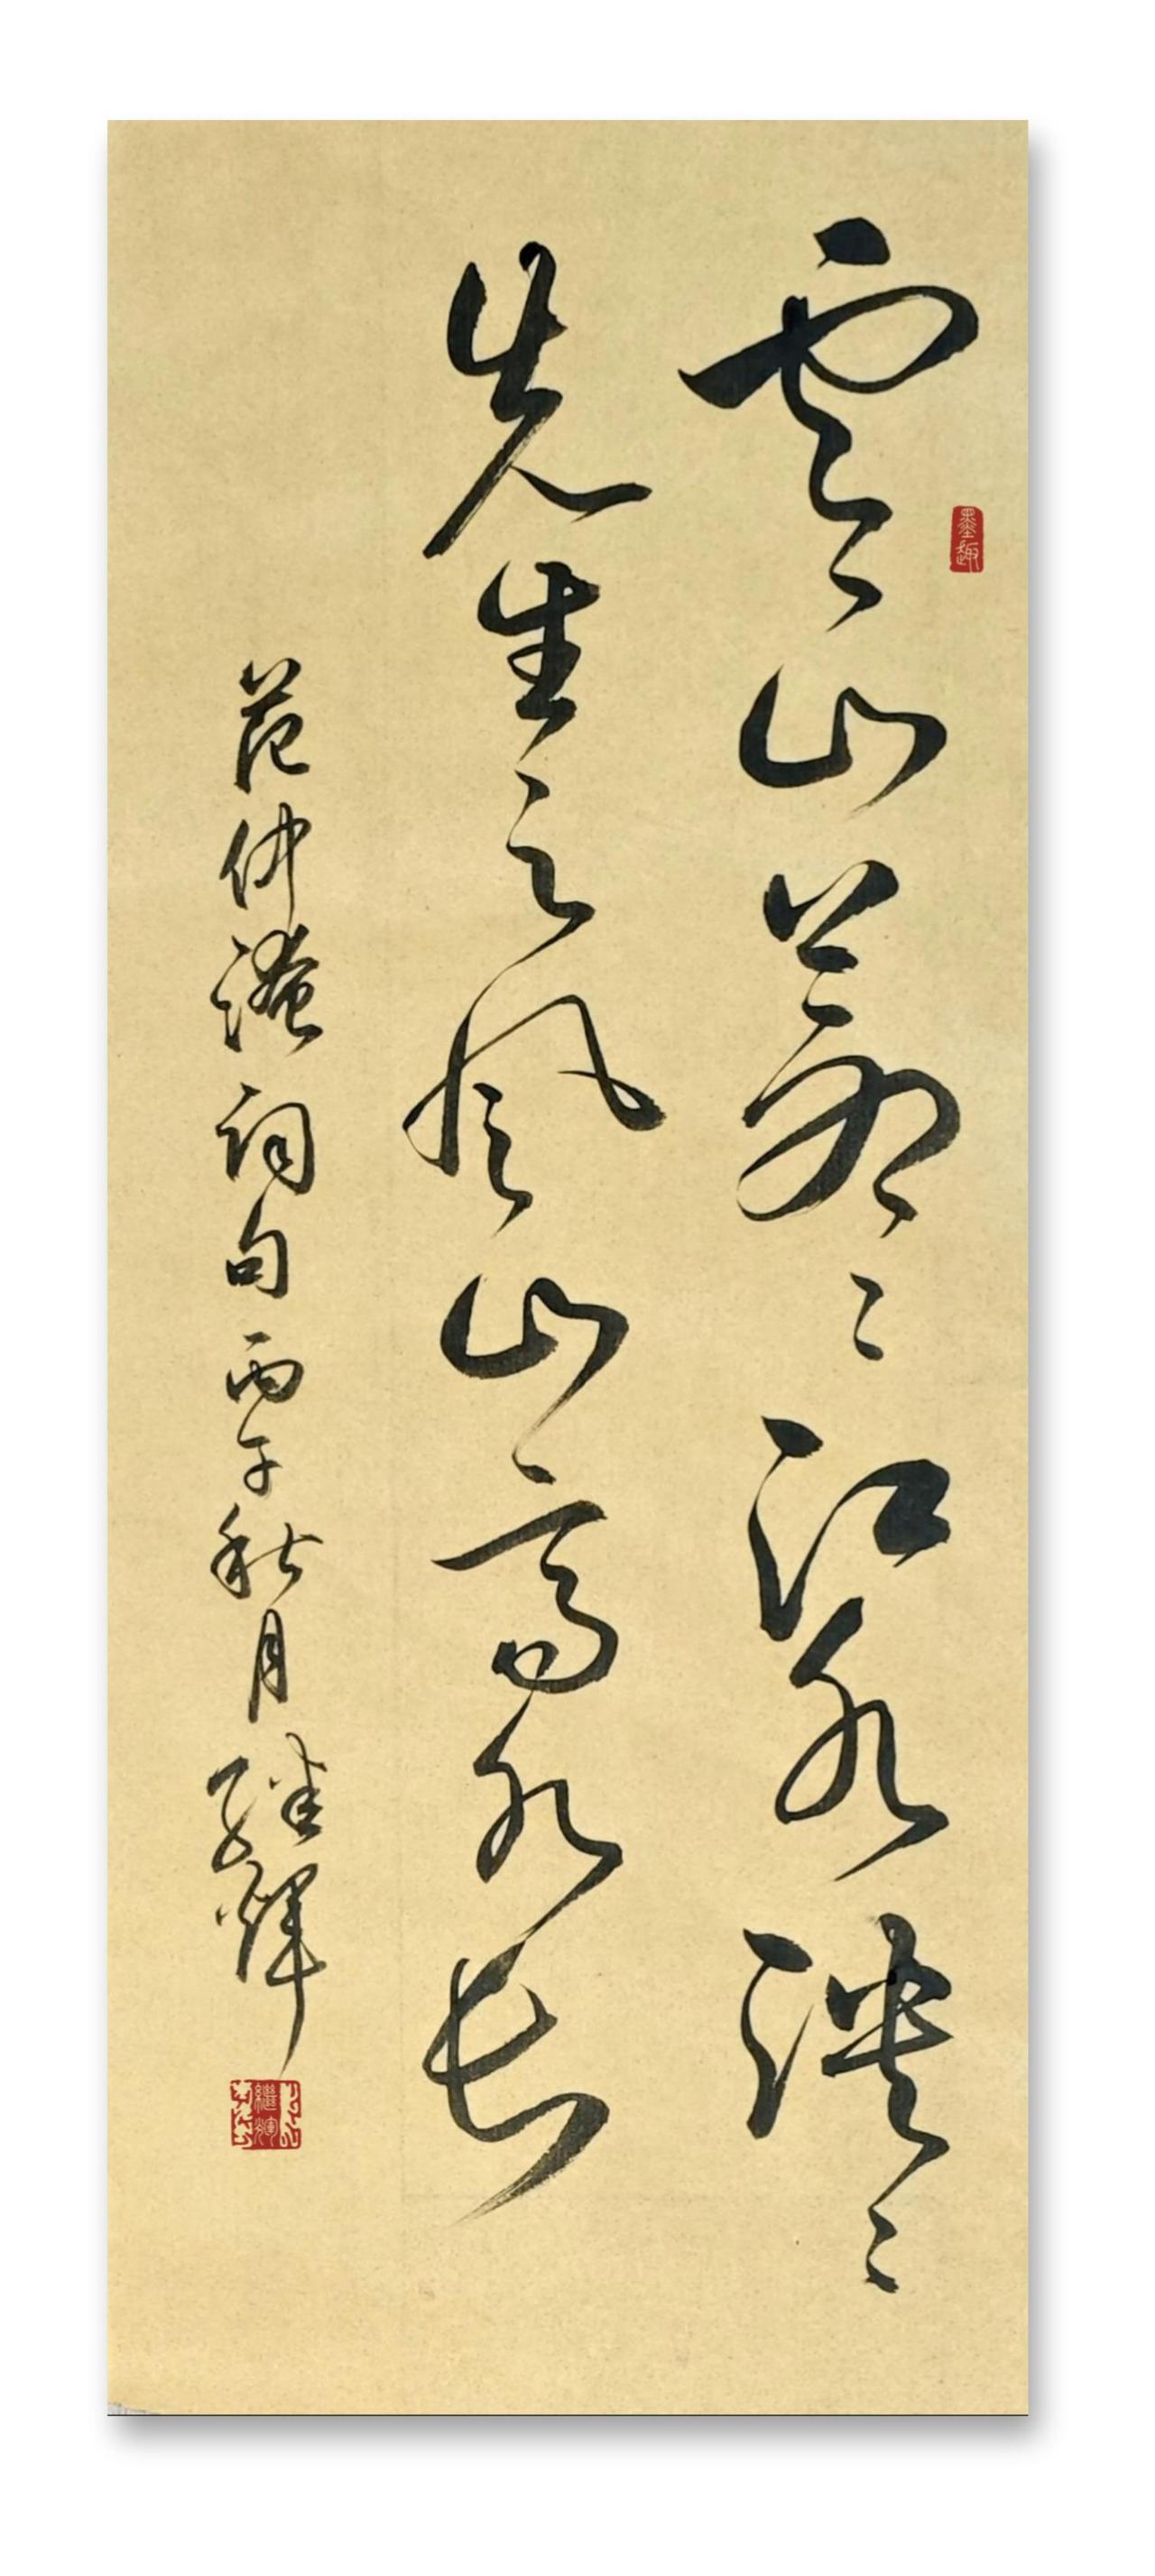 雲山蒼〻江水泱〻
先生之風山高水長
范仲淹詞句丙午秋月继輝
墨趣
繼輝